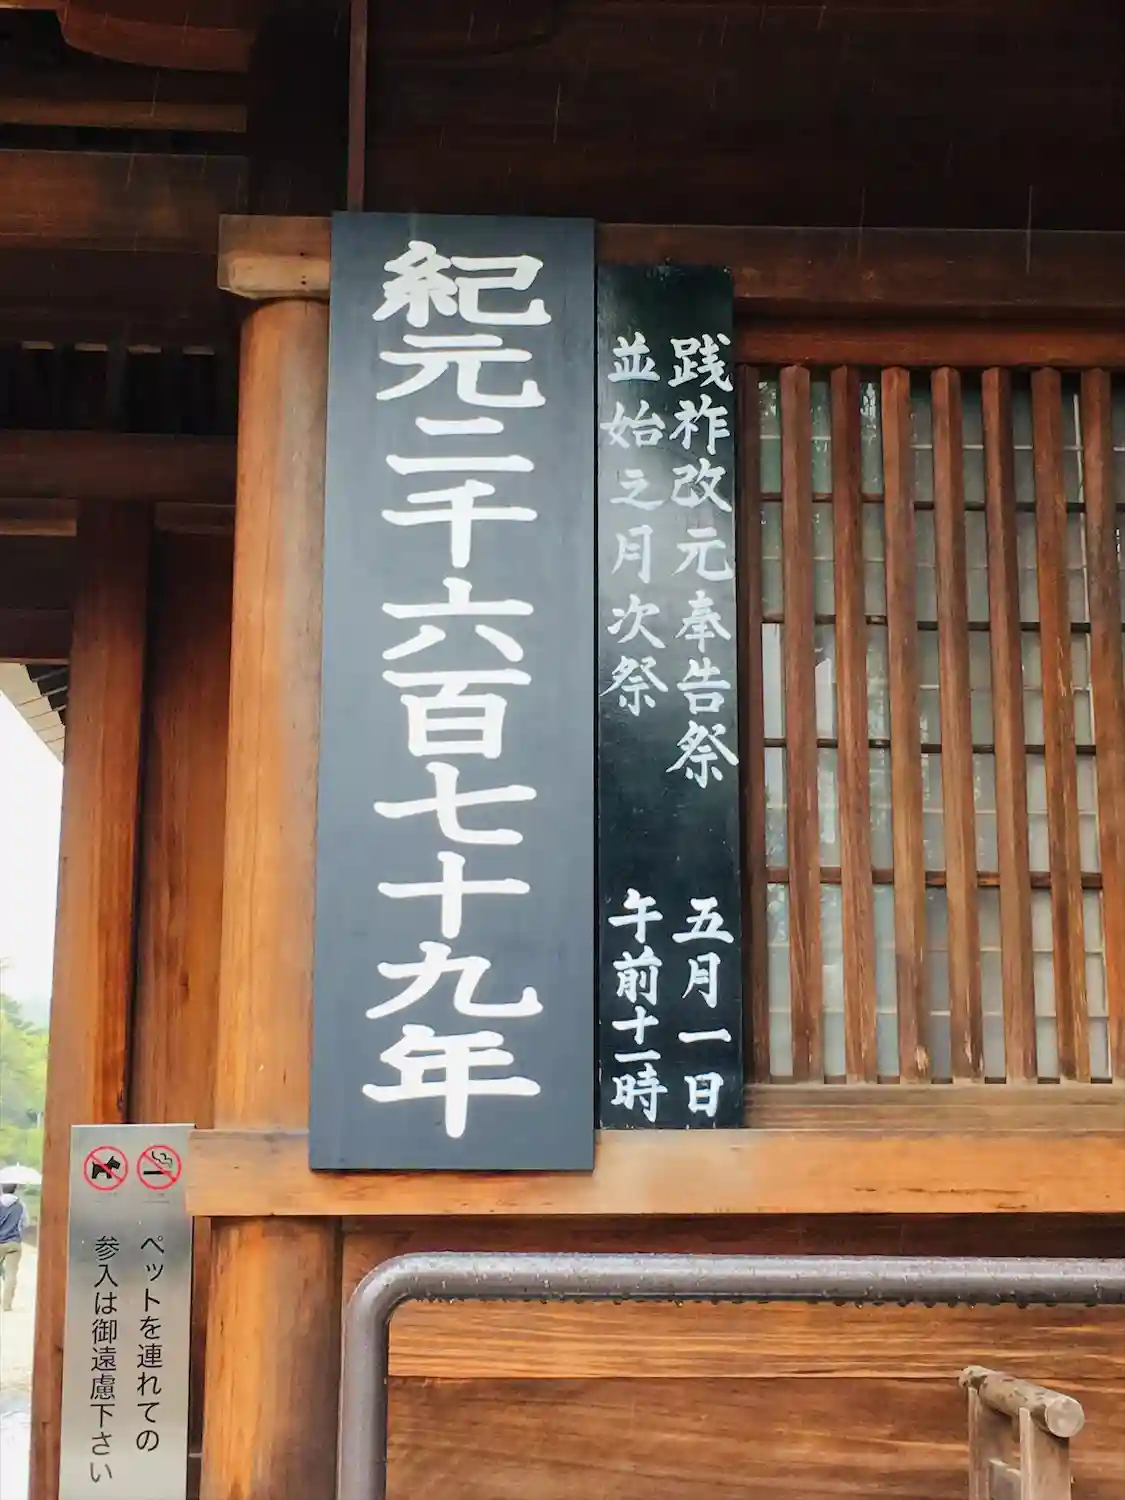 践祚改元奉告祭 五月一日
並始之月次祭 午前十一時
紀元二千六百七十九年
ペットを連れての
参入は御遠慮下さい